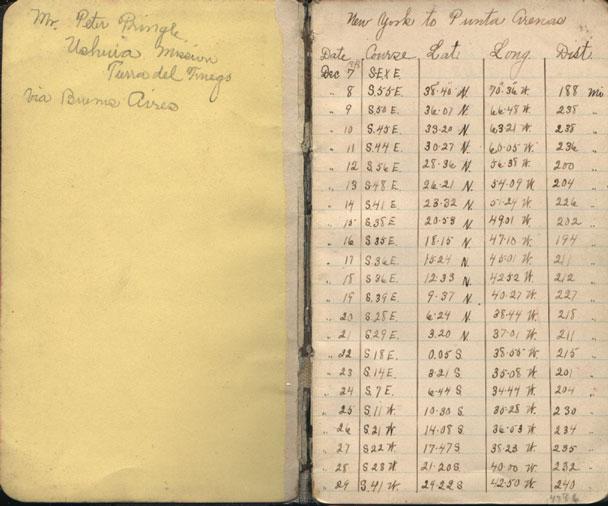 Mr. Peter Pringle
Ushuia Mission
Tierra del Fuego
via Buenos Aires
New York to Punta Arenas
Date Course Lat. Long. Dist.
Dec 7 S.E X E.
" 8 S.55 E. 38.40 N. 70.36 W. 188 mi
" 9 S.50 E. 36.07 N. 66.48 W. 238 "
" 10 S.45 E. 33.20 N. 63.21 W. 238 "
" 11 S.44 E. 30.27 N. 60.05 W. 236 "
" 12 S.56 E. 28.36 N. 56.38 W. 200 "
" 13 S.48 E. 26.21 N. 54.09 W. 204 "
" 14 S.41 E. 23.32 N. 51.24 W. 226 "
" 15 S.38 E. 20.53 N. 49.01 W. 202 "
" 16 S.35 E. 18.15 N. 47.10 W. 194 "
" 17 S.36 E. 15.24 N. 45.01 W. 211 "
" 18 S.36 E. 12.33 N. 42.52 W. 212 "
" 19 S.39 E. 9.37 N. 40.27 W. 227 "
" 20 S.28 E. 6.24 N. 38.44 W. 218 "
" 21 S.29 E. 3.20 N. 37.01 W. 211 "
" 22 S.18 E. 0.05 S. W. 215 "
" 23 S.14 E. 3.21 S. 35.08 W. 201 "
" 24 S.7 E. 6.44 S. 34.44 W. 204 "
" 25 S.11 W. 10.30 S. W. 230 "
" 26 S.21 W. 14.08 S. 36.53 W. 234 "
" 27 S.22 W. 17.47 S. 38.23 W. 235 "
" 28 S.28 W. 21.20 S. 40.00 W. 232 "
" 29 S.41 W. 24.22 S. 42.50 W. 240 "